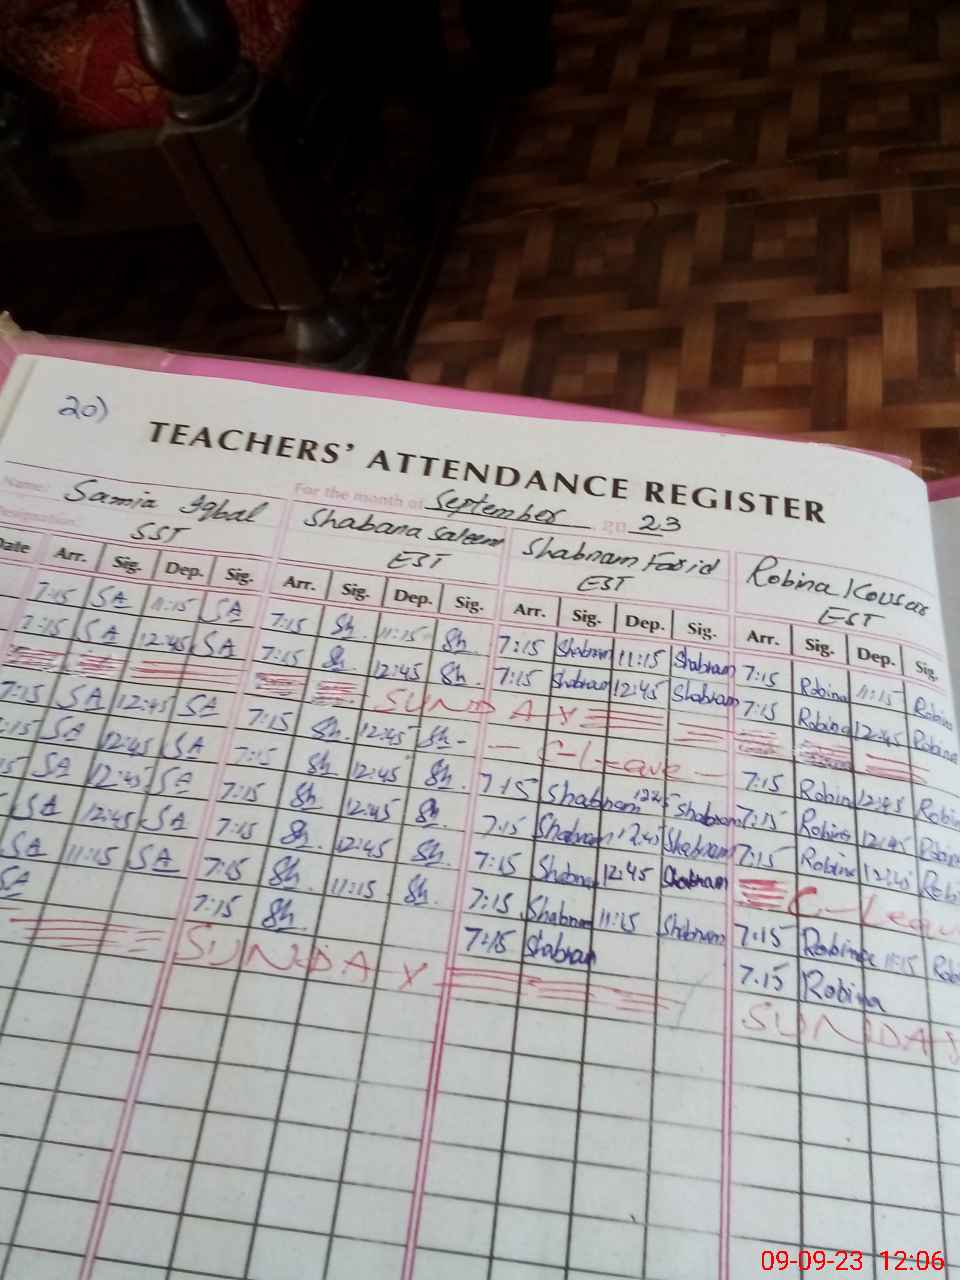 20)
TEACHERS' ATTENDANCE REGISTER
Name: Samia Iqbal For the month of September 20 23
Designation: SST Shabana Saleem EST Shabnam Farid EST Robina Kousar EST
Date Arr. Sig. Dep. Sig. Arr. Sig. Dep. Sig. Arr. Sig. Dep. Sig. Arr. Sig. Dep. Sig.
7:15 SA 11:15 SA 7:15 Sh. 11:15 Sh. 7:15 Shabnam 11:15 Shabnam 7:15 Robina 11:15 Robina
7:15 SA 12:45 SA 7:15 Sh. 12:45 Sh. 7:15 Shabnam 12:45 Shabnam 7:15 Robina 12:45 Robina
SUNDAY
7:15 SA 12:45 SA 7:15 Sh. 12:45 Sh- - C-Leave - 7:15 Robina 12:45 Robina
:15 SA 12:45 SA 7:15 Sh. 12:45 Sh. 7:15 Shabnam 12:45 Shabnam 7:15 Robina 12:45 Robina
15 SA 12:45 SA 7:15 Sh. 12:45 Sh. 7:15 Shabnam 12:45 Shabnam 7:15 Robina 12:45 Robi
SA 12:45 SA 7:15 Sh. 12:45 Sh. 7:15 Shabnam 12:45 Shabnam C-Leave
SA 11:15 SA 7:15 Sh. 11:15 Sh. 7:15 Shabnam 11:15 Shabnam 7:15 Robina 11:15 Rob
SA 7:15 Sh. 7:15 Shabnam 7.15 Robina
SUNDAY SUNDAY
09-09-23 12:06